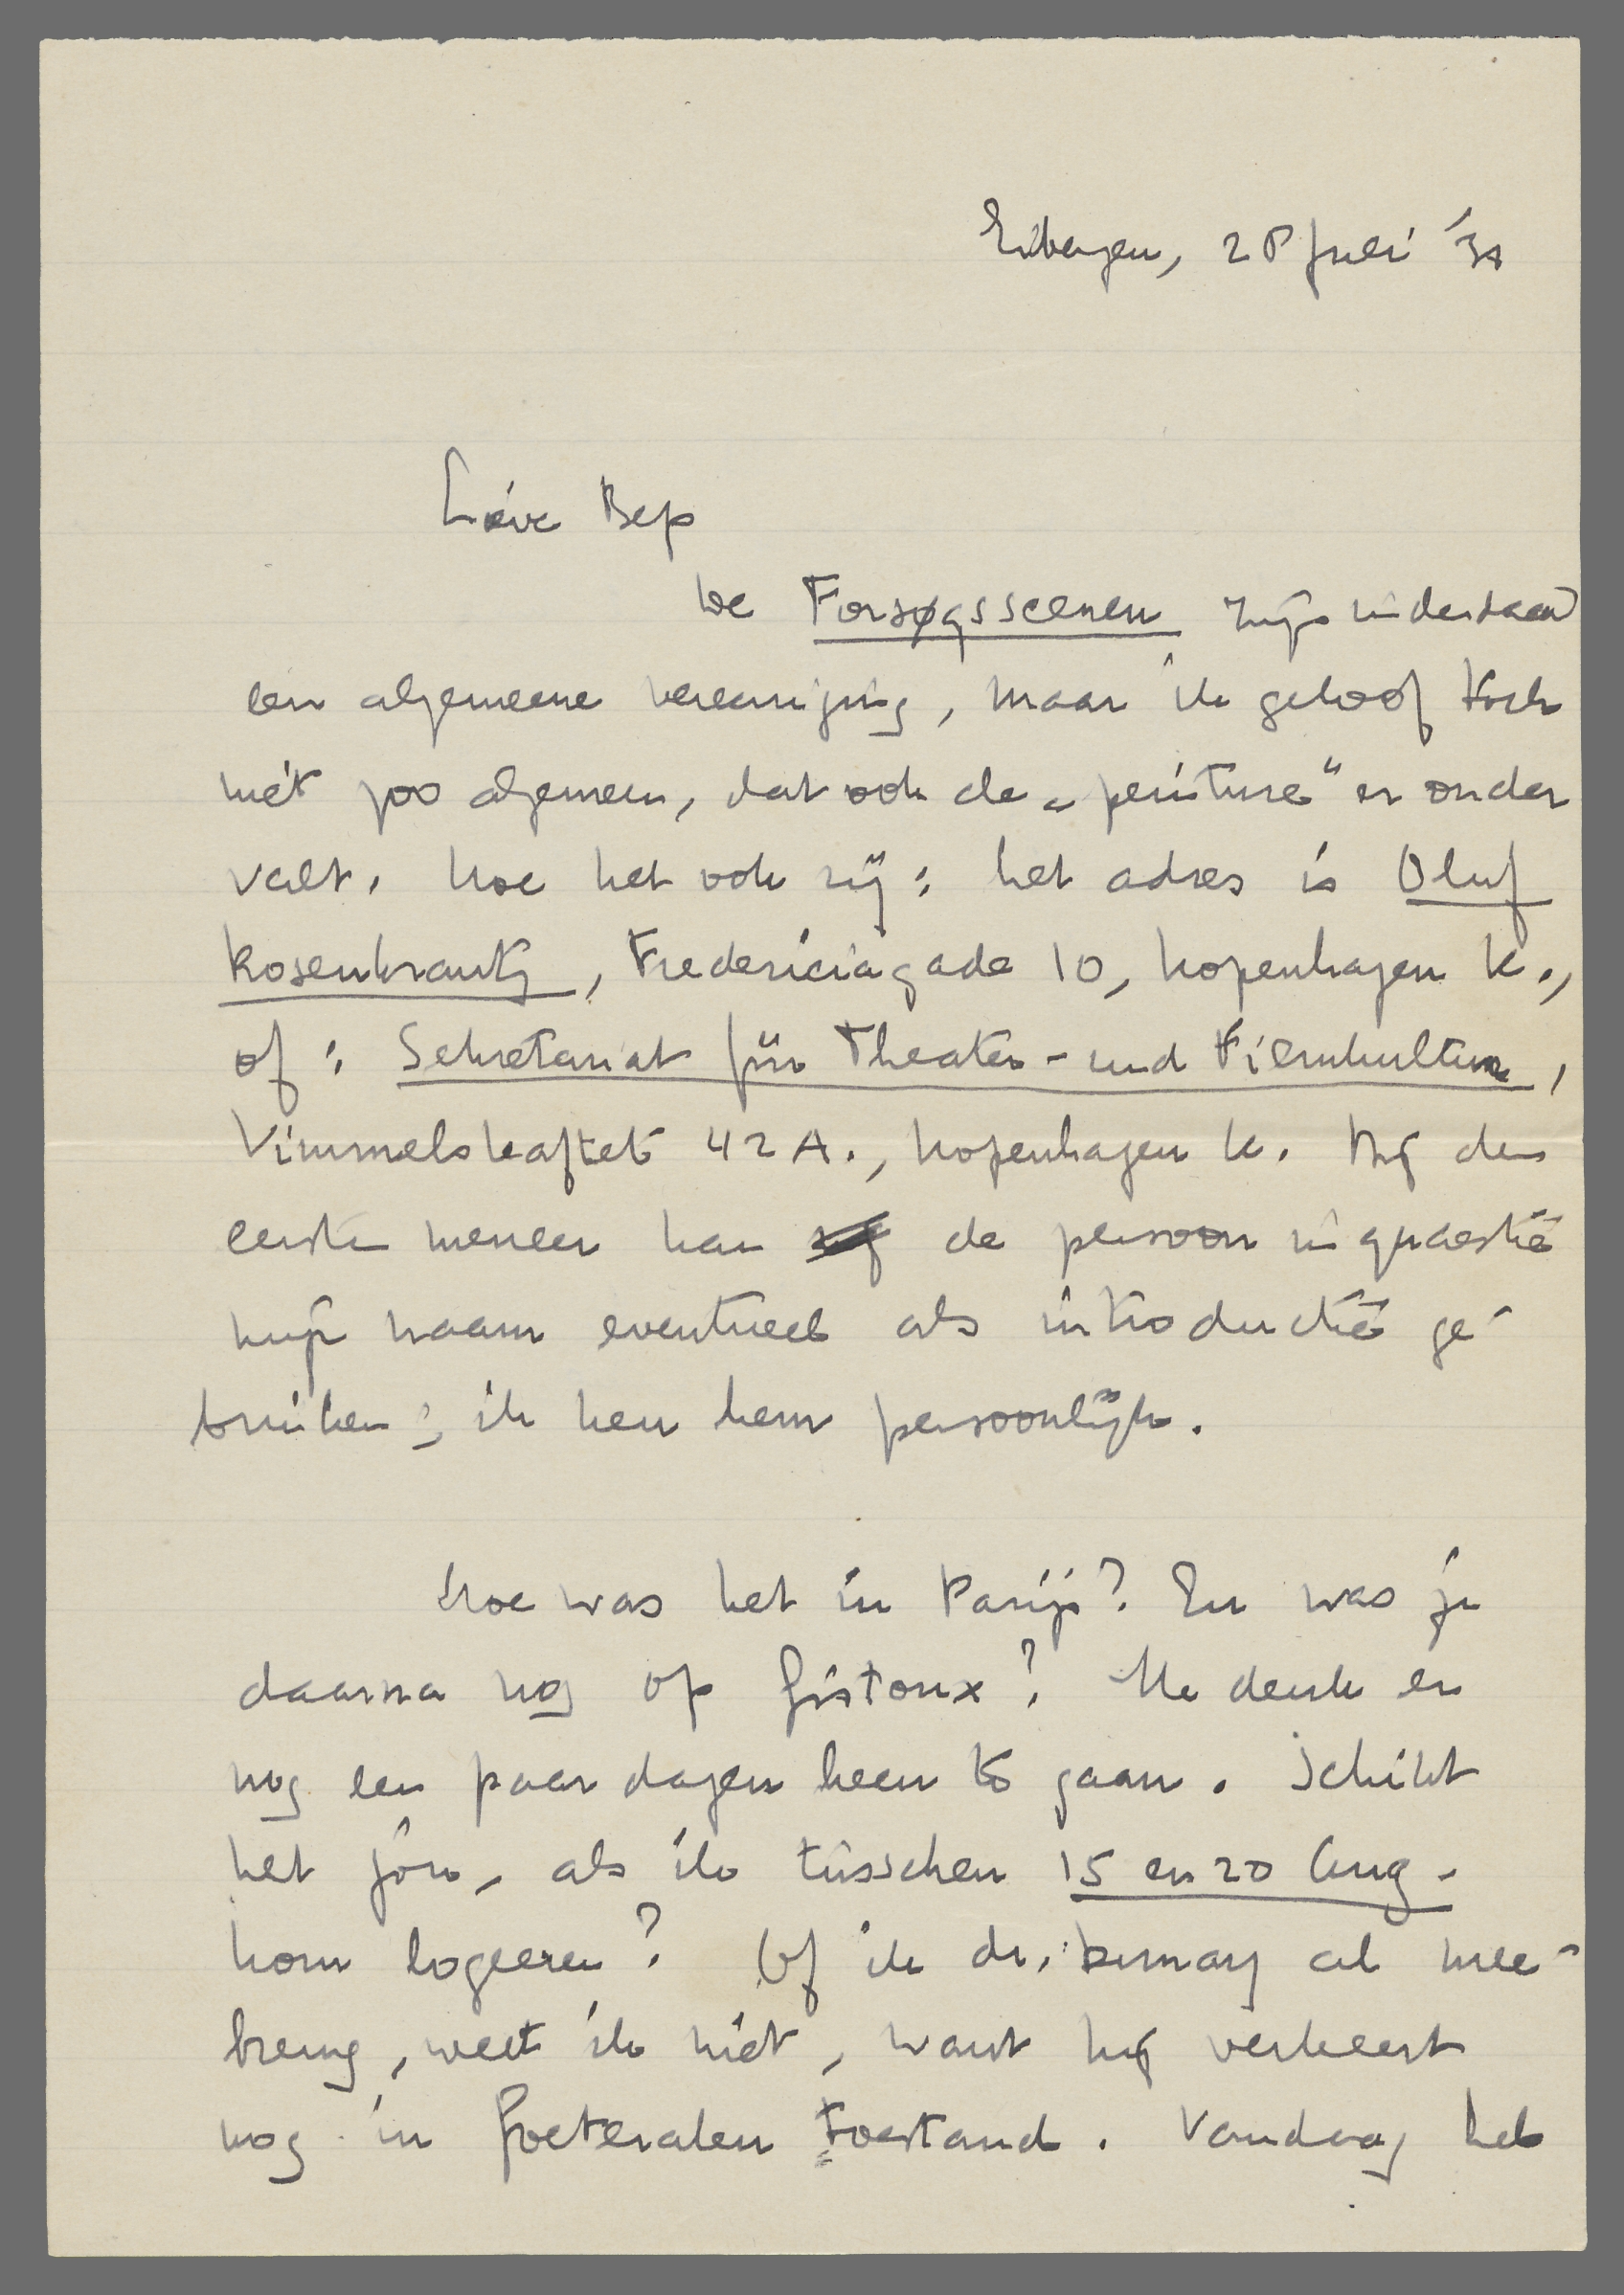 Eibergen, 28 Juli '31
Lieve Bep
De Forsøgsscenen zijn inderdaad
een algemeene vereeniging, maar ik geloof toch
niet zóó algemeen, dat ook de „peinture" er onder
valt. Hoe het ook zij: het adres is Oluf
Rosenkrantz, Fredericiagade 10, Kopenhagen K.,
of: Sekretariat für Theater- und Filmkultur,
Vimmelskaftet 42 A., Kopenhagen K. Bij den
eersten meneer kan de persoon in quaestie
mijn naam eventueel als introductie ge-
bruiken; ik ken hem persoonlijk.
Hoe was het in Parijs? En was je
daarna nog op Gistoux? Ik denk er
nog een paar dagen heen te gaan. Schikt
het jou, als ik tusschen 15 en 20 Aug.
kom logeeren? Of ik dr. Dumay al mee-
breng, weet ik niet, want hij verkeert
nog in foetalen toestand. Vandaag heb